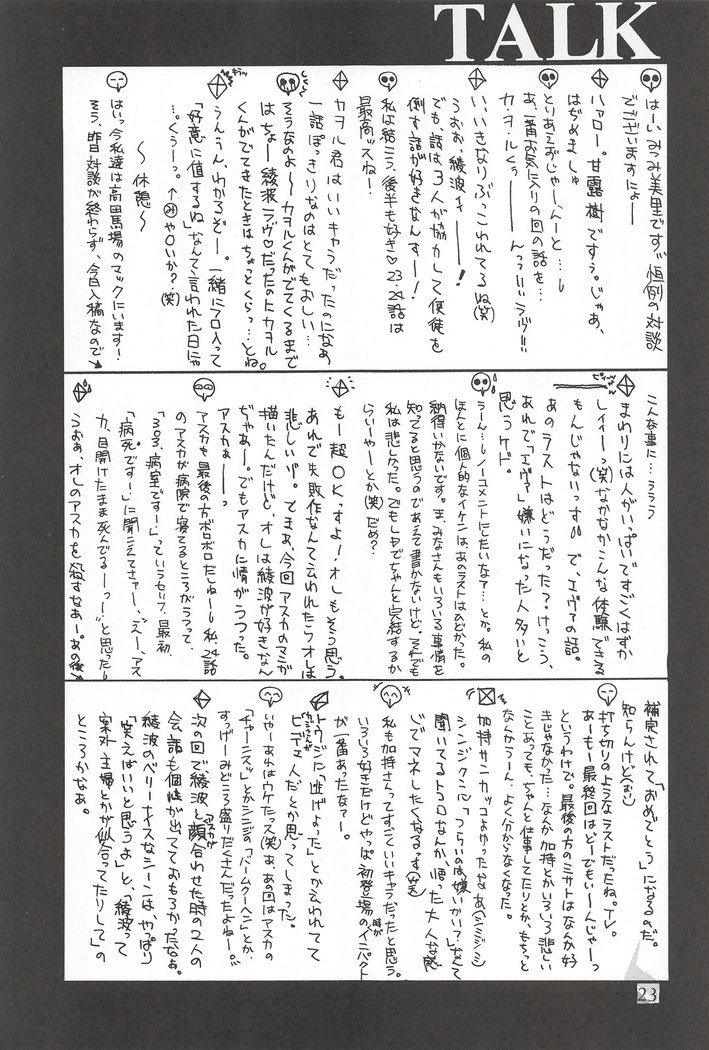 TALK
はーいみつみ美里です。恒例の対談
でございますにょー
ハァロー。甘露樹ですぅ。じゃあ、
はじめましゅ
とりあえずじゃーんーと…
あ、一番お気に入りの回の話を…
カヲルくぅーーんっっラヴ!!
いいきなりぶっこわれてるね(笑)
うおぉ、綾波ィー!
でも、話は3人が協力して使徒を
倒す話が好きなんすー!
私は結こう後半も好き♡23、24話は
最高ッスねー!
カヲル君はいいキャラだったのになぁ
一話ぽっきりなのはとてもおしい…
そうなのよ〜カヲルくんがでてくるまで
はちょー綾波ラヴ♡だったのトカヲル
くんがでてきたときはちょっとくらっ…とね。
うんうん、わかるぞー。一緒にフロ入って
「好意に値するね」なんて言われた日にゃ
…くぅーっ。
〜休憩〜
はいっ今私達は高田馬場のマックにいます!
そう、昨日対談が終わらず、今日入稿なので
こんな事に…ううう
まわりには人がいっぱいですごくはずか
しィー(笑)なかなかこんな体験できる
もんじゃないっす。で、エヴァの話。
あのラストはどうだった?けっこう、
あれで「エヴァ」嫌いになった人多いと
思うケド。
うーん…ノーコメントにしたいなァ…とか。私の
ほんとに個人的なイケンは、あのラストはひどかった。
納得いかないです。ま、みなさんもいろいろ事情を
知ってると思うのであえて書かないけど。それでも
私は悲しかった。でもLDでちゃんと完結するか
らいーやーとか(笑)だめ?
もー超OKっすよ!オレもそう思う。
あれで失敗作なんて云われたらオレは
悲しいゾ。でまぁ、今回アスカのマンガ
描いたんだけど、オレは綾波が好きなん
ぢゃあー。でもアスカに情がうつった。
アスカぁーーっ
アスカも最後の方ボロボロだしねー私、24話
のアスカが病院で寝てるところがうつって、
「303、病室です…」っていうセリフ、最初
「病死です…」に聞こえてさァー、えー、アス
カ、目開けたまま死んでるーっ!と思ったー
うおぉ、オレのアスカを殺すなぁー。あの後
補完されて「おめでとう」になるのだ。
知らんけど
打ち切りのようなラストだったね。TV。
あーもー最終回はどーでもいーんじゃーっ
というわけで。最後の方のミサトはなんか好
きじゃなかった…なんか加持とかいろいろ悲しい
ことあっても、ちゃんと仕事してたりとか、もちっと
なんかうーん、よく分からなくなった。
加持サンカッコよかったなぁ
シンジクンに「つらいのは嫌いかい?」なんて
聞いてるトコロなんか、悟った大人な感
じでマネしたくなるっす(笑)
私も加持さんってすごくいいキャラだったと思う。
いろいろ好きだけどやっぱ初登場の時がインパクト
が一番あったなァー。
トウジに「逃げよった」とか云われてて
ヒデェ人だとか思ってしまった。
いやーあれはウケたっス(笑)あ、あの回はアスカの
「チャーンス」とかシンジの「バームクーヘン」とか、
すっげーみどころ盛りだくさんだったよねー。
次の回で綾波と顔合わせた時の2人の
会話も個性が出てておもろかったなぁ。
綾波のベリーナイスなシーンは、やっぱり
「笑えばいいと思うよ」と、「綾波って
案外主婦とかが似合ってたりして」の
ところかなぁ。
23